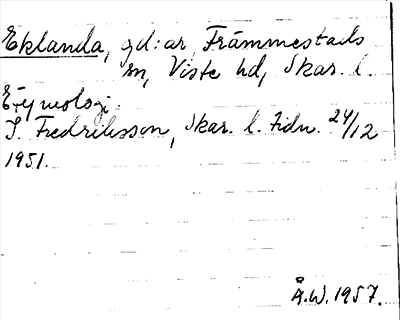 Eklanda, gd:ar, Främmestads
sn, Viste hd, Skar. l.
Etymologi.
I. Fredriksson, Skar. l. tidn. 24/12
1951.
Å.W. 1957.